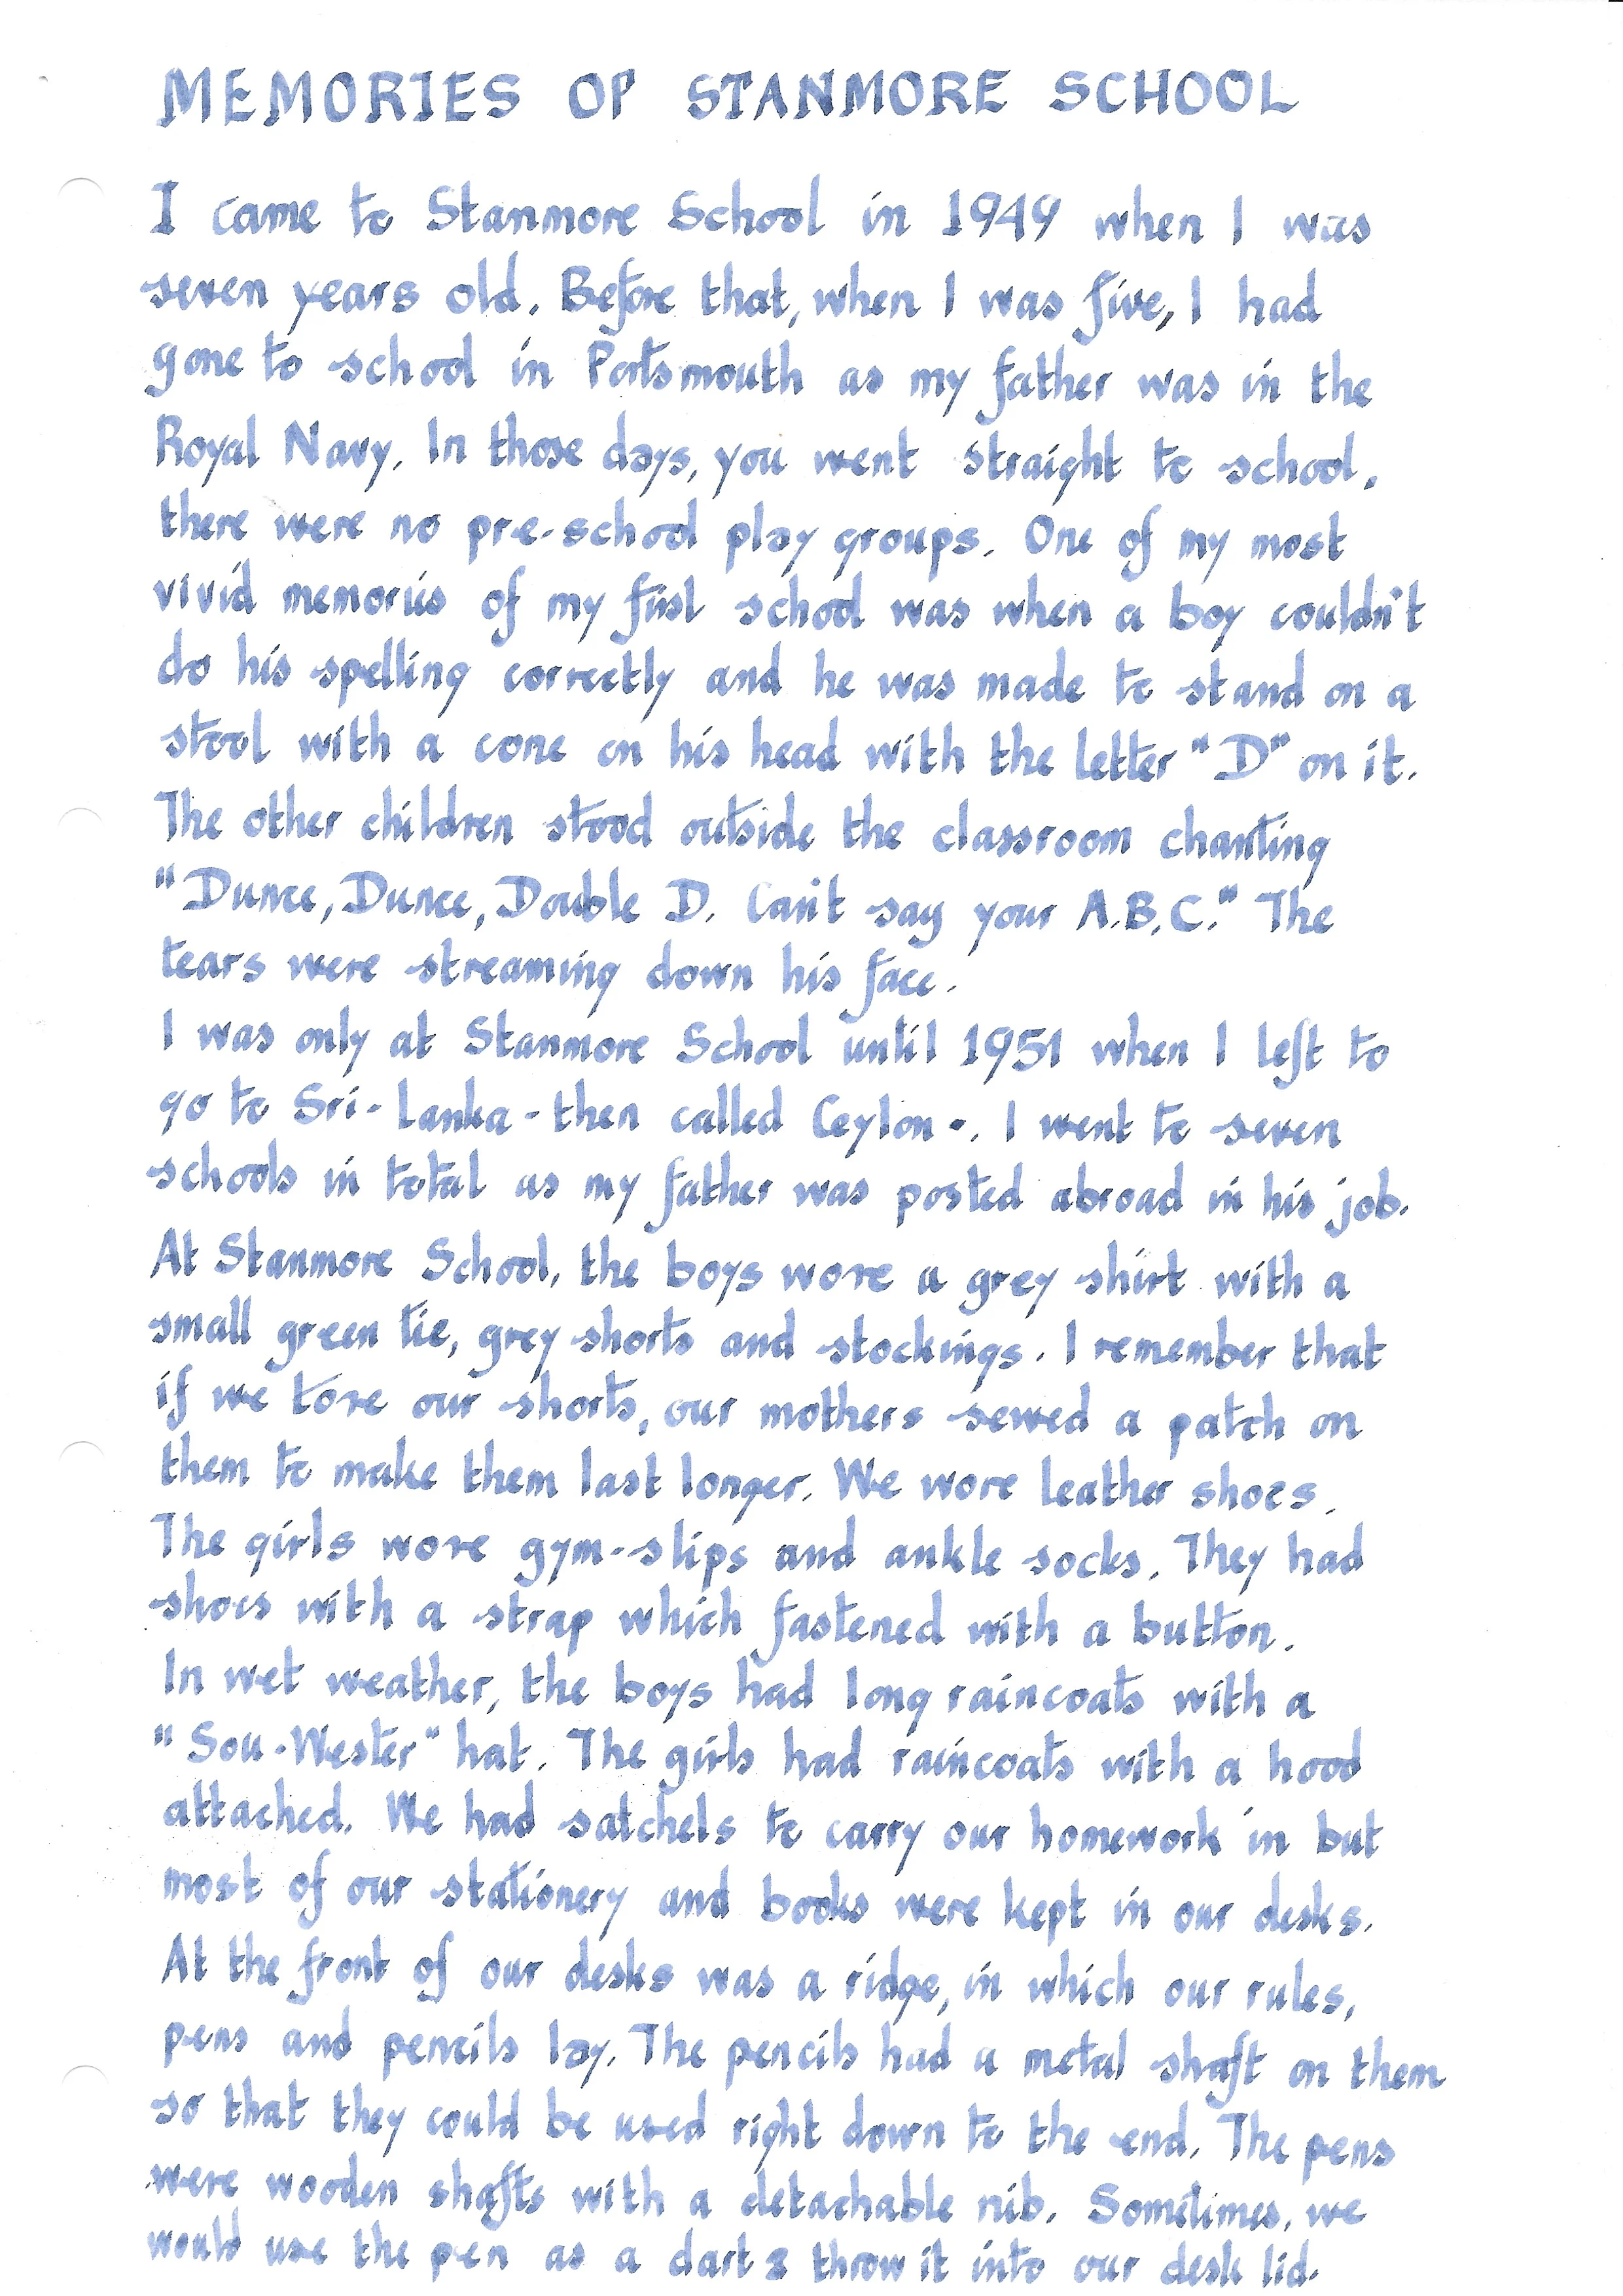 MEMORIES OF STANMORE SCHOOL
I came to Stanmore School in 1949 when I was
seven years old. Before that, when I was five, I had
gone to school in Portsmouth as my father was in the
Royal Navy. In those days, you went straight to school,
there were no pre-school play groups. One of my most
vivid memories of my first school was when a boy couldn't
do his spelling correctly and he was made to stand on a
stool with a cone on his head with the letter "D" on it.
The other children stood outside the classroom chanting
"Dunce, Dunce, Double D. Can't say your A.B.C." The
tears were streaming down his face.
I was only at Stanmore School until 1951 when I left to
go to Sri-Lanka - then called Ceylon -. I went to seven
schools in total as my father was posted abroad in his job.
At Stanmore School, the boys wore a grey shirt with a
small green tie, grey shorts and stockings. I remember that
if we tore our shorts, our mothers sewed a patch on
them to make them last longer. We wore leather shoes.
The girls wore gym-slips and ankle socks. They had
shoes with a strap which fastened with a button.
In wet weather, the boys had long raincoats with a
"Sou-Wester" hat. The girls had raincoats with a hood
attached. We had satchels to carry our homework in but
most of our stationery and books were kept in our desks.
At the front of our desks was a ridge, in which our rules,
pens and pencils lay. The pencils had a metal shaft on them
so that they could be used right down to the end. The pens
were wooden shafts with a detachable nib. Sometimes, we
would use the pen as a dart & throw it into our desk lid.